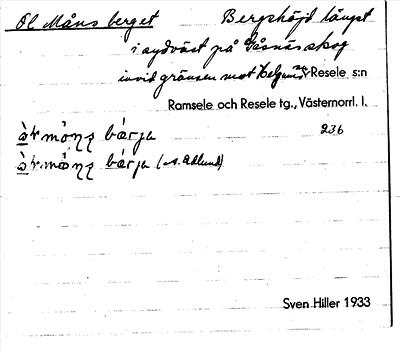 Ol Måns berget Bergshöjd längst
i sydväst på Gåsnäs skog
invid gränsen mot Helgums sn. Resele s:n
Ramsele och Resele tg., Västernorrl. l.
236
bárja
bárja (A. Edlund)
Sven Hiller 1933